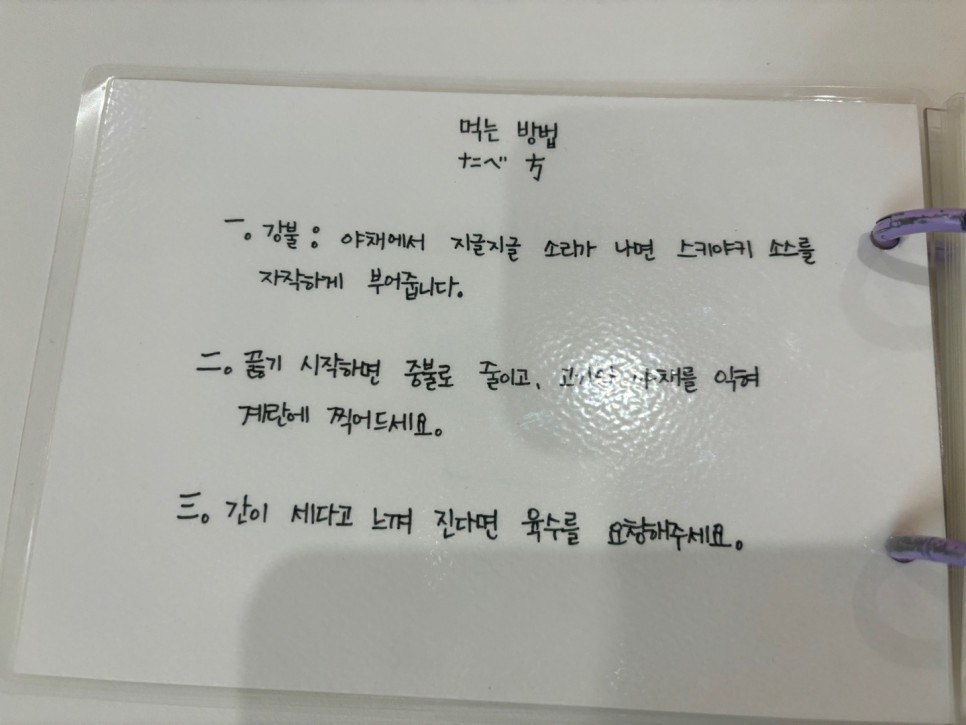 먹는 방법
たべ方
一。강불 : 야채에서 지글지글 소리가 나면 스키야키 소스를
자작하게 부어줍니다.
二。끓기 시작하면 중불로 줄이고, 고기와 야채를 익혀
계란에 찍어드세요。
三。간이 세다고 느껴 진다면 육수를 요청해주세요。